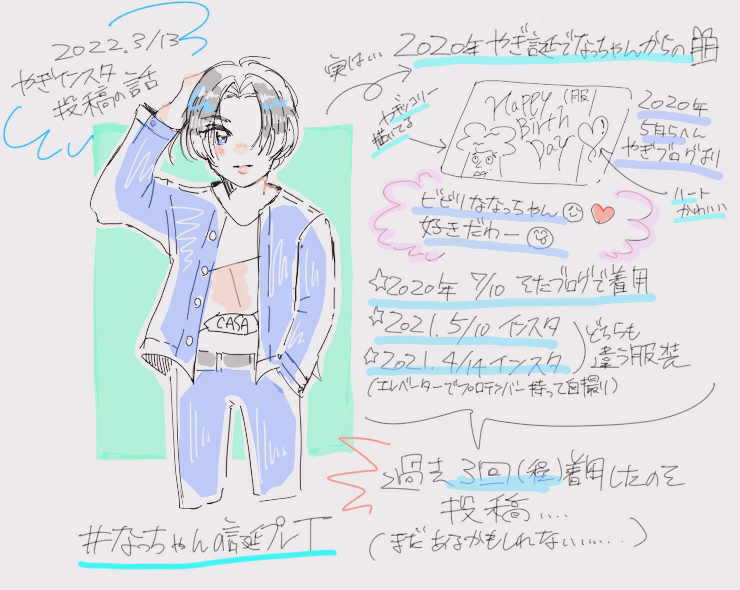 2022.3/13
やぎインスタ
投稿の話
実は…
2020年やぎ誕でなっちゃんからの
やぎッコリー
描いてる
Happy (服)
Birth
Day
2020年
5月らへん
やぎブログより
ハート
かわいい
ビビりななっちゃん
好きだわー
☆2020年 7/10 そたブログで着用
☆2021.5/10 インスタ
☆2021.4/14 インスタ
どちらも
違う服装
(エレベーターでプロテインバー持って自撮り)
CASA
過去 3回(程)着用したので
投稿….
(まだあるかもしれない……)
#なっちゃんの誕プレT